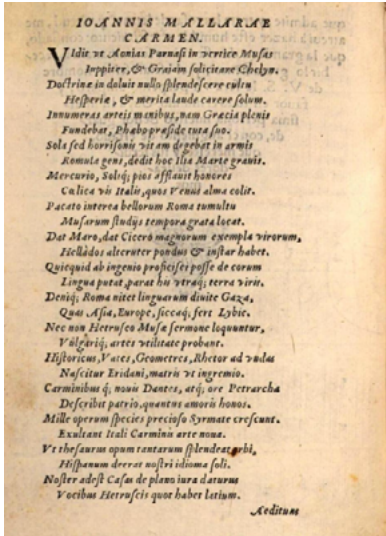 IOANNIS MALLARAE
CARMEN.
VIdit vt Aonias Parnasi in vertice Musas
Iuppiter, & Graiam solicitare Chelyn.
Doctrinæ in doluit nullo splendescere cultu
Hesperiæ, & merita laude carere solum.
Innumeras arteis manibus, nam Græcia plenis
Fundebat, Phœbo præside tuta suo.
Sola sed horrisonis vitam degebat in armis
Romula gens, dedit hoc Ilia Marte grauis.
Mercurio, Soliq; pios afflauit honores
Cælica vis Italis, quos Venus alma colit.
Pacato interea bellorum Roma tumultu
Musarum studijs tempora grata locat.
Dat Maro, dat Cicero magnorum exempla virorum,
Hellados alteruter pondus & instar habet.
Quicquid ab ingenio proficisci posse decorum
Lingua putat, parat his vtraq; terra viris.
Deniq; Roma nitet linguarum diuite Gaza,
Quas Asia, Europe, siccaq; fert Lybie.
Nec non Hetrusco Musæ sermone loquuntur,
Vulgariq; artes vtilitate probant.
Historicus, Vates, Geometres, Rhetor ad vndas
Nascitur Eridani, matris vt ingremio.
Carminibus q; nouis Dantes, atq; ore Petrarcha
Describit patrio, quantus amoris honos.
Mille operum species precioso Syrmate crescunt.
Exultant Itali Carminis arte noua.
Vt thesaurus opum tantarum splendeat orbi,
Hispanum deerat nostri idioma soli.
Noster adest Casas de plano iura daturus
Vocibus Hetruscis quot habet latium.
Aeditum